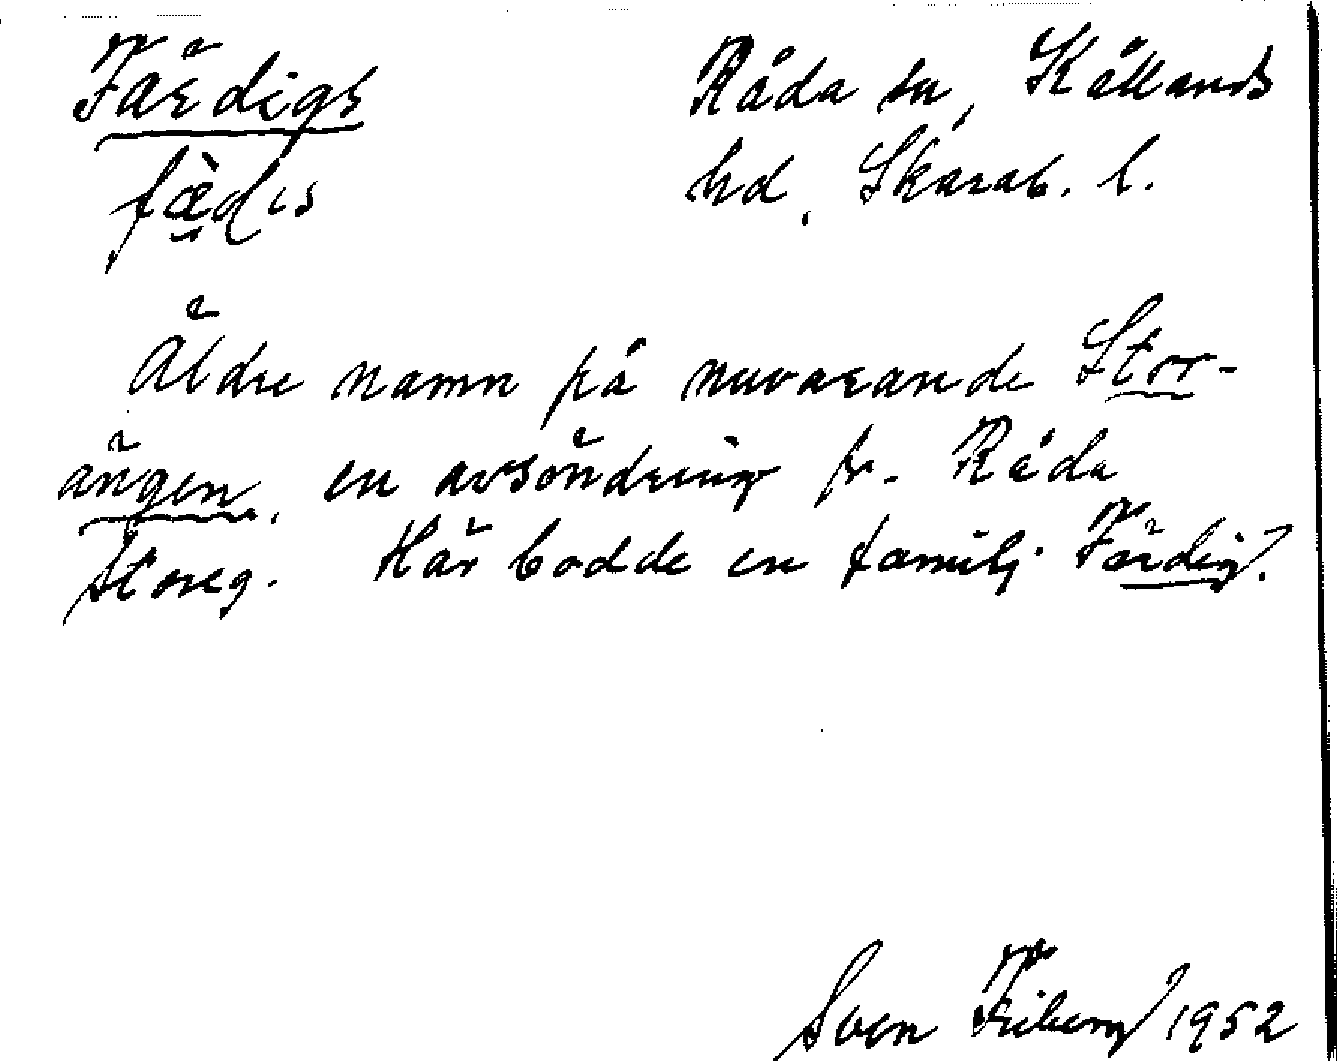 Färdigs Råda sn, Kållands
fæ̀dis hd, Skarab. l.
Äldre namn på nuvarande Stor-
ängen, en avsöndring fr. Råda
Storeg. Här bodde en familj Färdig.
Sven Friberg 1952